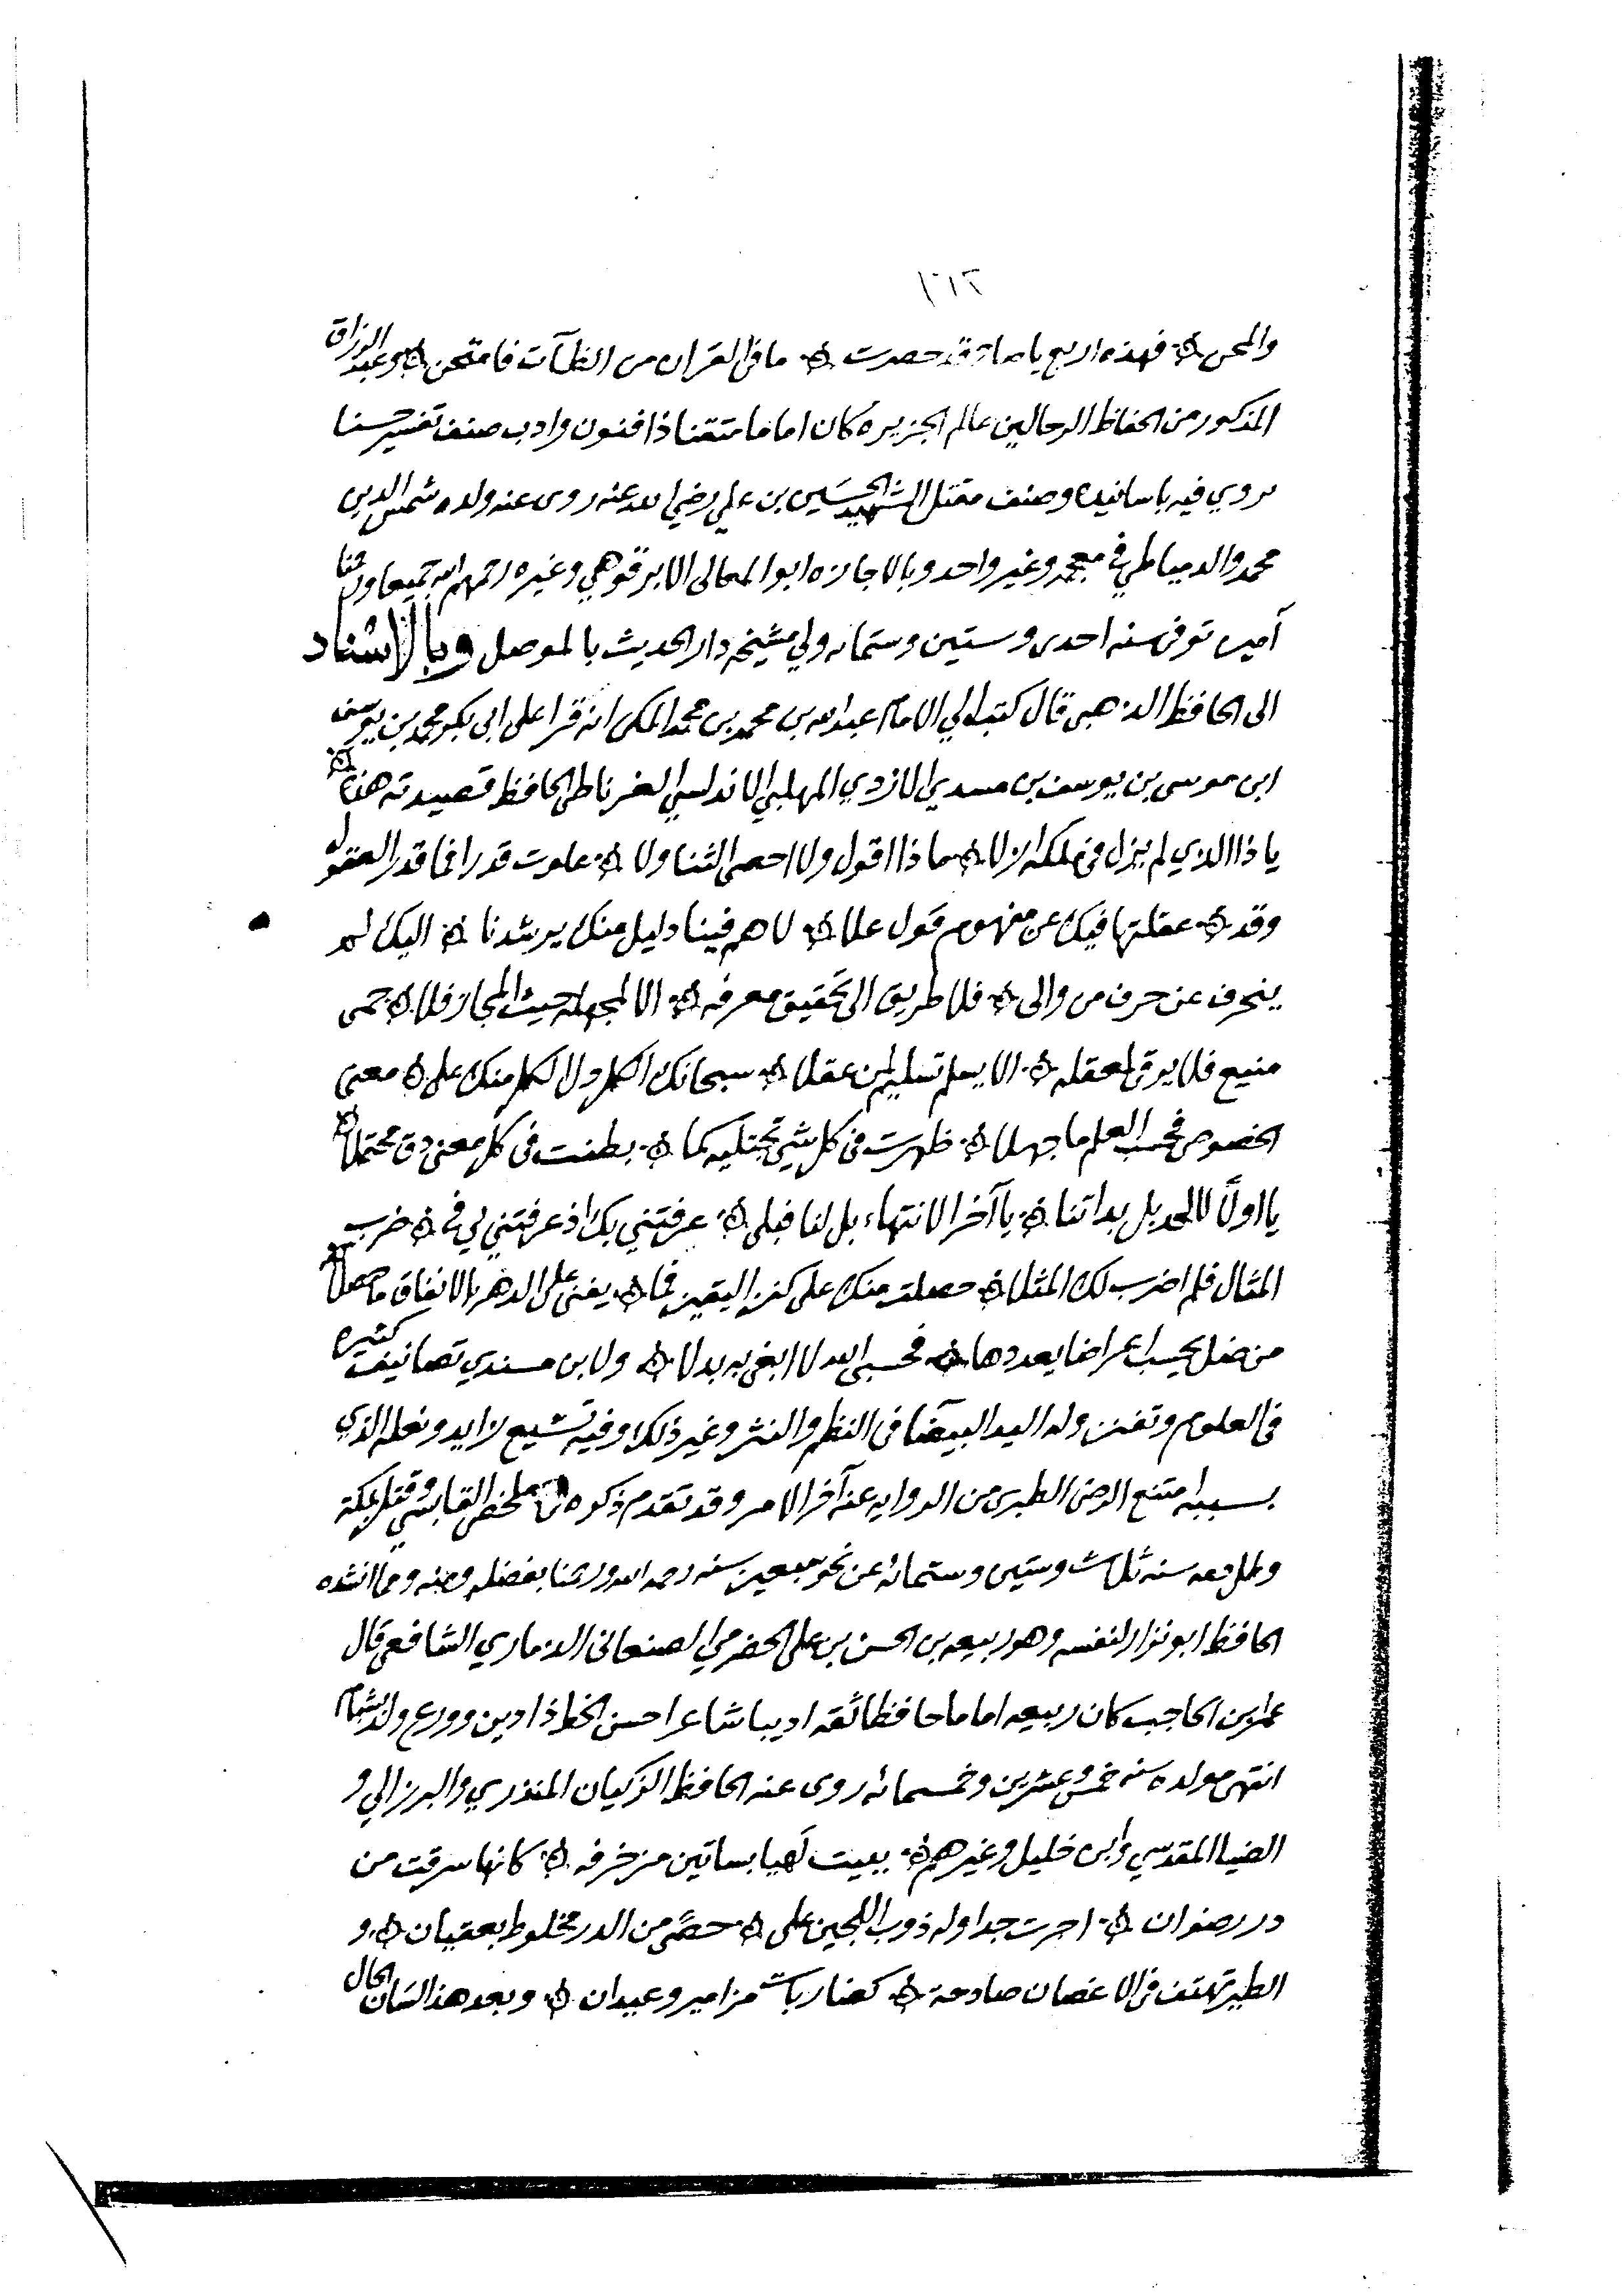 ٢١٢
والمحن ۞ فهذه اربع يا صاح قد حصرت ۞ ما في القران من الظآت فامتحن ۞ وعبد الرزاق
المذكور من الحفاظ الرحالين عالم الجزيره كان اماما متقنا ذا فنون وادب صنف تفسير حسنا
يروي فيه باسانيده وصنف مقتل الشهيد الحسين بن علي رضي الله عنه روى عنه ولده شمس الدين
محمد والدمياطي في معجمه وغير واحد وبالاجازه ابو المعالي الابرقوهي وغيره رحمهم الله جميعا ورحمنا
آمين توفي سنه احدى وستين وستمايه ولي مشيخه دار الحديث بالموصل وبالاسناد
الى الحافظ الذهبي قال كتب الي الامام عبد الله بن محمد بن محمد المكي انه قرا على ابي بكر محمد بن يوسف
ابن موسى بن يوسف بن مسدي الازدي المهلبي الاندلسي الغرناطي الحافظ قصيدته هذه ۞
يا ذا الذي لم يزل في ملكه ازلا ۞ ماذا اقول ولا احصي الثنا ولا ۞ علوت قدرا فما قدر العقول
وقد ۞ عقلتها فيك عن مفهوم قول علا ۞ لا هم فينا دليل منك يرشدنا ۞ اليك لم
ينحرف عن حرف من والى ۞ فلا طريق الى تحقيق معرفه ۞ الا لمجهله حيث المجاز فلا ۞ حمى
منيع فلا يرقى لمعقله ۞ الا يسلم تسليم لمن عقلا ۞ سبحانك الكل ولا لكل منك على ۞ معنى
الخصوص فحسب العلم ما جهلا ۞ ظهرت في كل شي تجتليه كما ۞ بطنت في كل معنى دق محتملا ۞
يا اولًا لا لحد بل بداتنا ۞ يا آخرا لا نتهاء بل لنا فبلى ۞ عرفتني بك اذ عرفتني لي في ۞ ضرب
المثال فلم اضرب لك المثلا ۞ حصلت منك على كنز اليقين فما ۞ يفنى على الدهر بالانفاق ما حصلا ۞
من ضل يحسب اعراضا يعددها ۞ فحسبي الله لا ابغي به بدلا ۞ ولابن مسندي تصانيف كثيره
في العلوم وتفنن وله اليد البيضا في النظم والنثر وغير ذلك وفيه تشيع زايد ونعله الذي
بسببه امتنع الرضي الطبري من الروايه عنه آخر الامر وقد تقدم ذكره في ملخص القابسي وقتل بمكة
وطل دمه سنه ثلاث وستين وستمائه عن نحو سبعين سنه رحمه الله ورحمنا بفضله ومنه ومما انشده
الحافظ ابو نزار لنفسه وهو ربيعه بن الحسن بن علي الحضرمي الصنعاني الذماري الشافعي قال
عمر بن الحاجب كان ربيعه اماما حافظا ثقه اديبا شاعرا حسن الخط ذا دين وورع ولد بشبام
انتهى مولده سنه خمس وعشرين وخمسمائه روى عنه الحافظ الزكيان المنذري والبرزالي و
الضيا المقدسي وابن خليل وغيرهم ۞ ببيت لهيا بساتين مزخرفه ۞ كانها سرقت من
در رضوان ۞ اجرت جداوله ذوب اللجين على ۞ حصًى من الدر مخلوط بعقيان ۞ و
الطير تهتف في الاغصان صادحة ۞ كضاربات مزامير وعيدان ۞ وبعد هذا لسان الحال